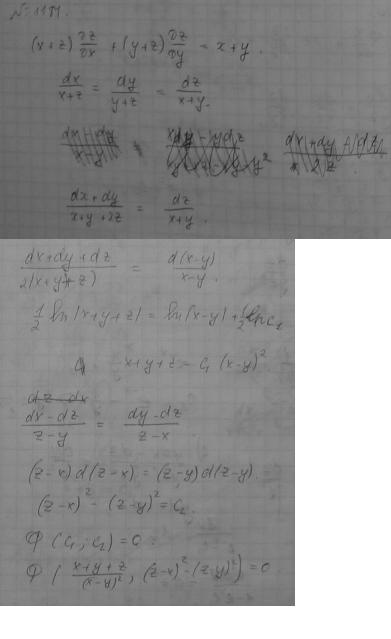 (x+z) ∂z/∂x + (y+z) ∂z/∂y = x+y.
dx/(x+z) = dy/(y+z) = dz/(x+y).
(dx+dy)/(x+y+2z) = dz/(x+y).
(dx+dy+dz)/(2(x+y+z)) = d(x-y)/(x-y).
1/2 ln|x+y+z| = ln(x-y) + 1/2 ln c₁
x+y+z = c₁ (x-y)²
(dx-dz)/(z-y) = (dy-dz)/(z-x)
(z-x) d(z-x) = (z-y) d(z-y).
(z-x)² - (z-y)² = C₂.
Ф (C₁; C₂) = 0.
Ф ( (x+y+z)/(x-y)², (z-x)² - (z-y)² ) = 0